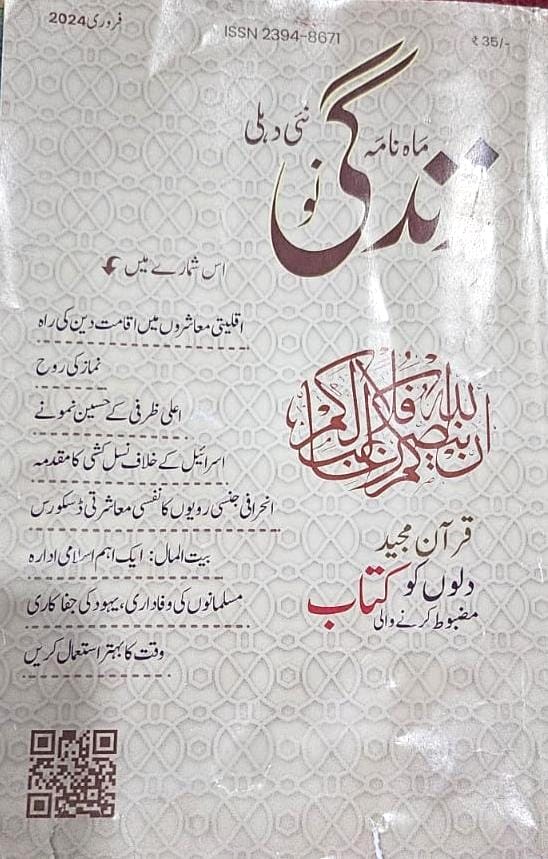 فروری 2024
ISSN 2394-8671
₹ 35/-
ماہ نامہ
نئی دہلی
زندگی نو
اس شمارے میں
اقلیتی معاشروں میں اقامت دین کی راہ
نماز کی روح
اعلی ظرفی کے حسین نمونے
اسرائیل کے خلاف نسل کشی کا مقدمہ
انحرافی جنسی رویوں کا نفسی معاشرتی ڈسکورس
بیت المال: ایک اہم اسلامی ادارہ
مسلمانوں کی وفاداری، یہود کی جفا کاری
وقت کا بہتر استعمال کریں
ان ینصرکم اللہ فلا غالب لکم
قرآن مجید
دلوں کو
مضبوط کرنے والی کتاب